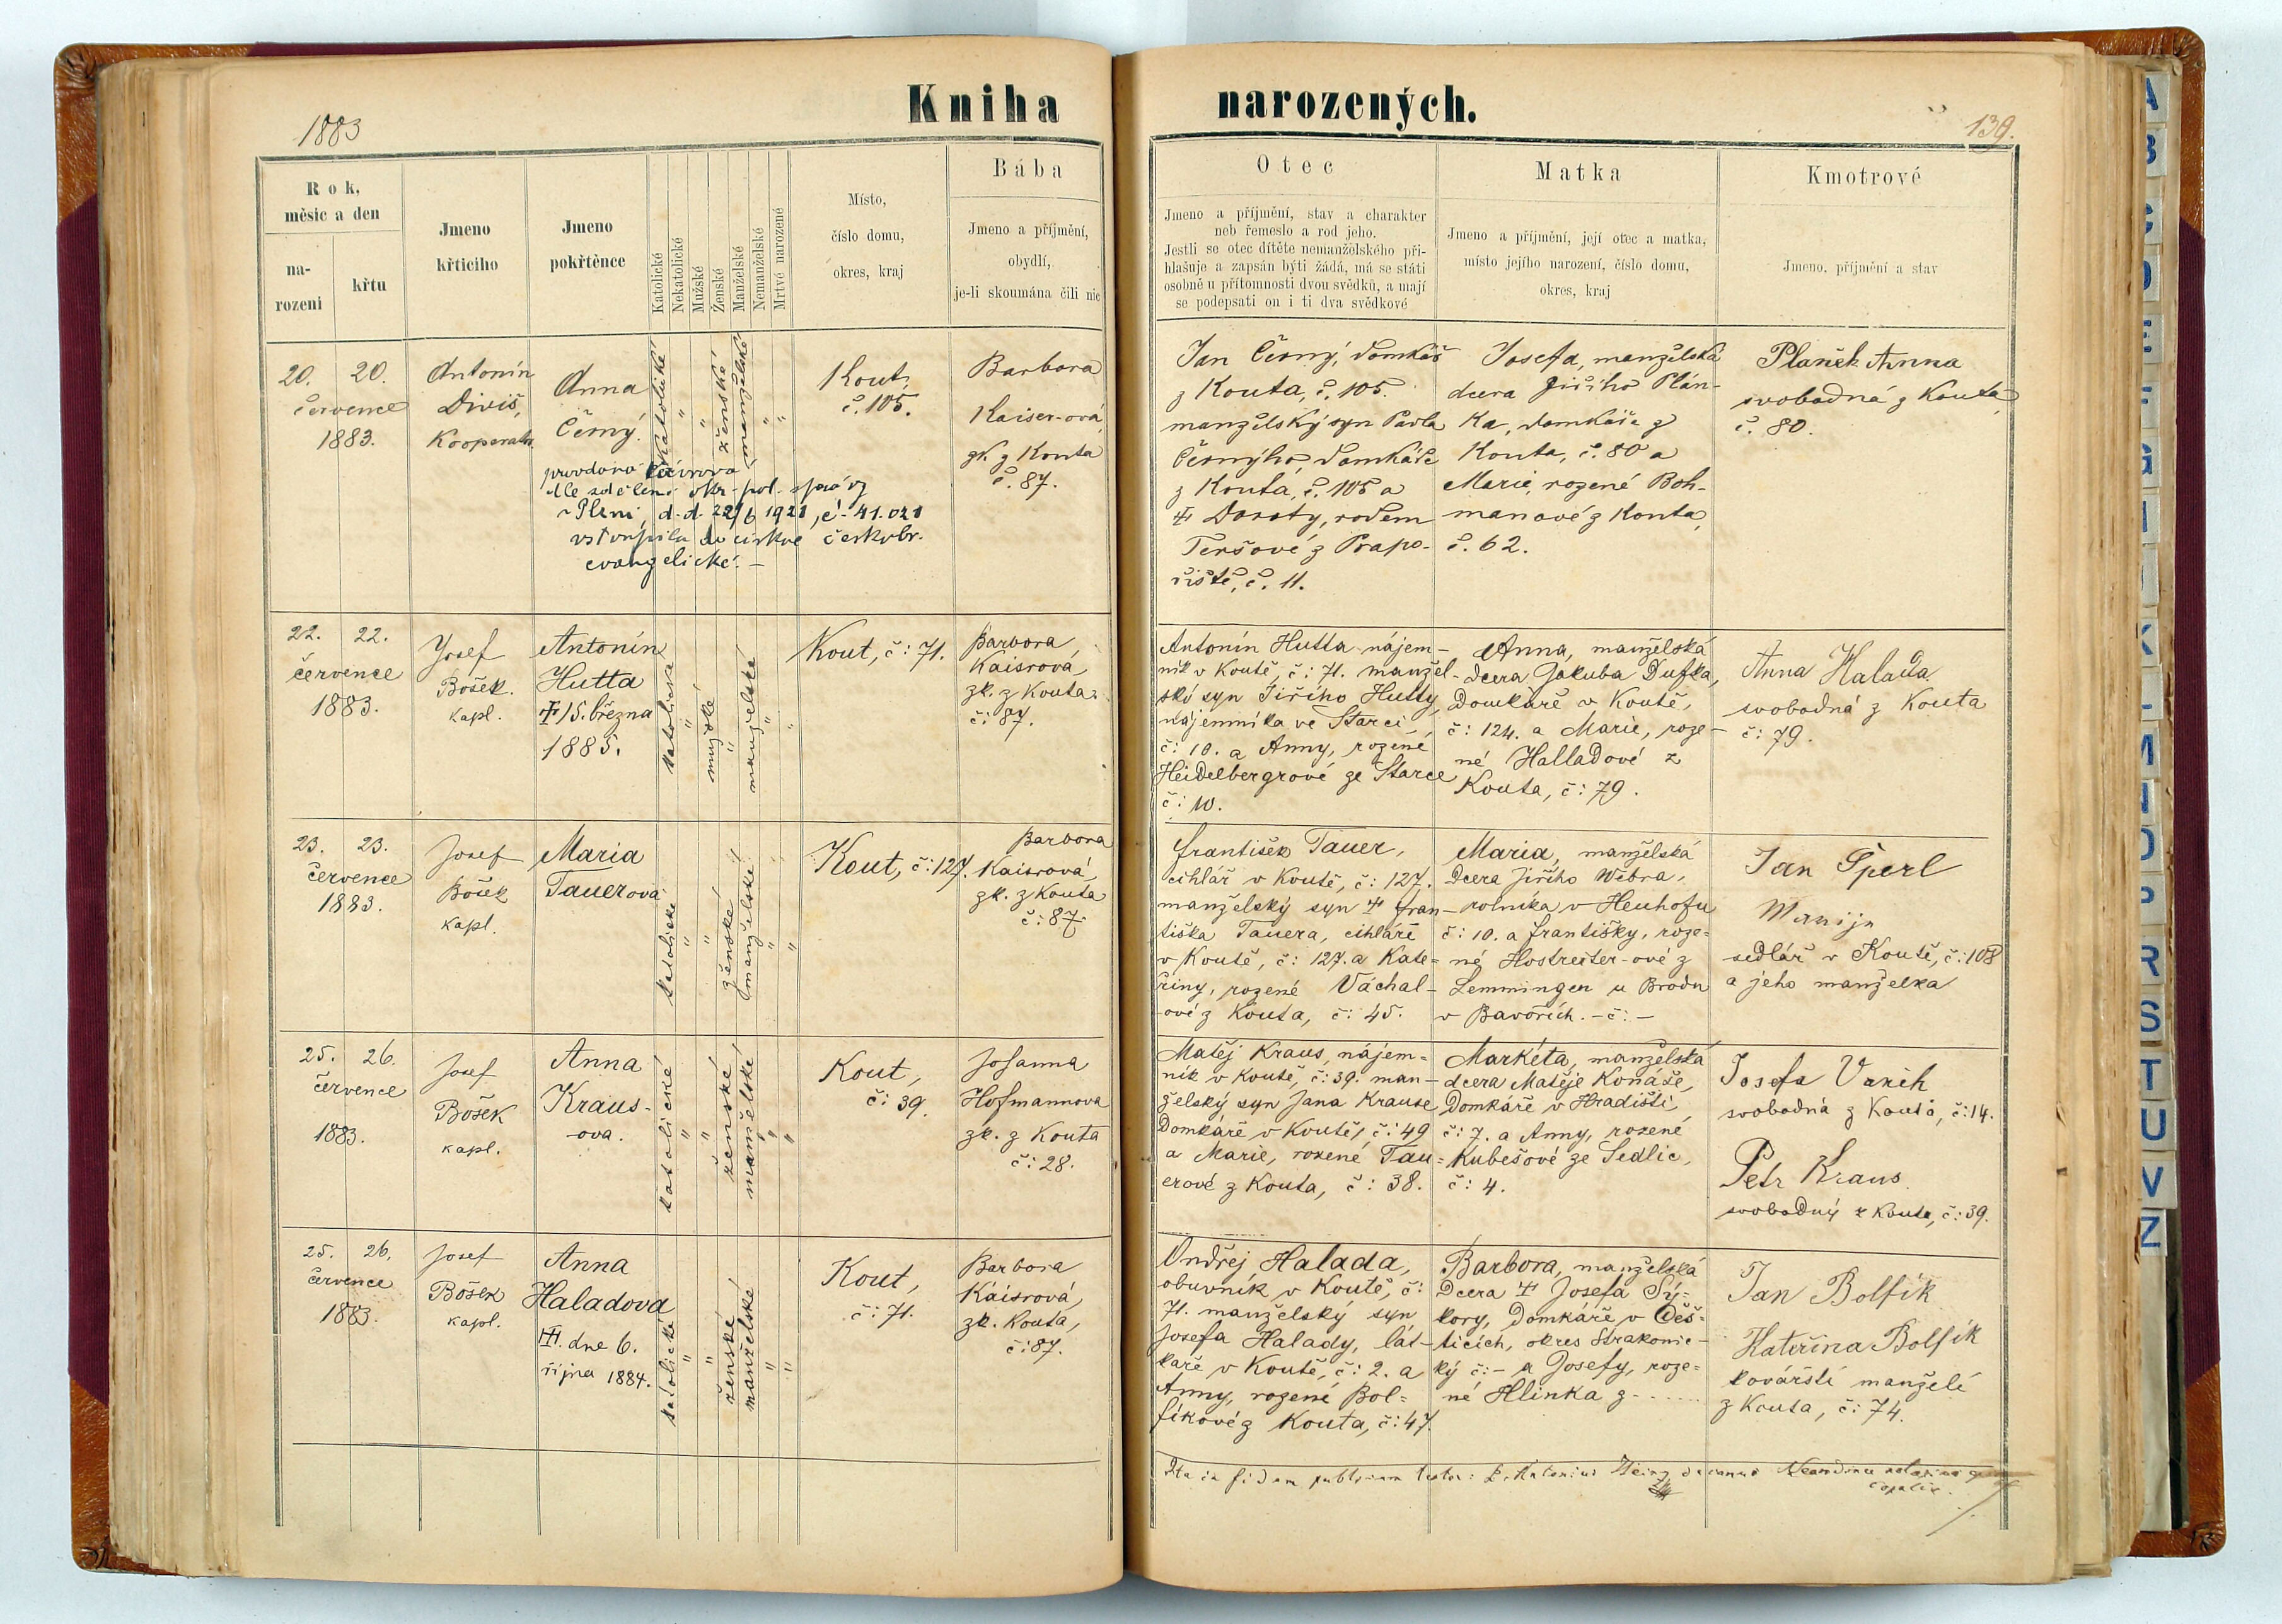 1883
Kniha narozených.
139.
Rok, měsíc a den
narození
křtu
Jmeno křticího
Jmeno pokřtěnce
Katolické
Nekatolické
Mužské
Ženské
Manželské
Nemanželské
Mrtvě narozené
Místo,
číslo domu,
okres, kraj
Bába
Jmeno a příjmění,
obydlí,
je-li skoumána čili nic
Otec
Jmeno a příjmění, stav a charakter
neb řemeslo a rod jeho.
Jestli se otec dítěte nemanželského při-
hlašuje a zapsán býti žádá, má se státi
osobně u přítomnosti dvou svědků, a mají
se podepsati on i ti dva svědkové
Matka
Jmeno a příjmění, její otec a matka,
místo jejího narození, číslo domu,
okres, kraj
Kmotrové
Jmeno, příjmění a stav
20. 20.
července
1883.
Antonín
Diviš,
Kooperator
Anna
Černý.
provdaná
dle sdělení okr. pol. správy
v Plzni, d.d. 22/6 1921, č. 41.021
vstoupila do církve českobr.
evangelické. –
katolické
"
"
ženské
manželské
"
"
Kout,
č. 105.
Barbora
Kaiser-ová,
zk. z Kouta
č. 87.
Jan Černý, domkář
z Kouta, č. 105.
manželský syn Pavla
Černýho, domkáře
z Kouta, č. 105 a
† Doroty, rodem
Teršové z Prapo-
řiště, č. 11.
Josefa, manželská
dcera Jiřího Plán-
ka, domkáře z
Kouta, č. 80 a
Marie, rozené Boh-
manové z Kouta,
č. 62.
Planek Anna
svobodná z Kouta,
č. 80.
22. 22.
července
1883.
Josef
Bošek.
kapl.
Antonín
Hutta
† 15. března
1885.
katolické
"
mužské
"
manželské
"
"
Kout, č: 71.
Barbora
Kaisrová,
zk. z Kouta
č: 87.
Antonín Hutta nájem-
ník v Koutě, č: 71. manžel-
ský syn Jiřího Hutty,
nájemníka ve Starci,
č: 10. a Anny, rozené
Heidelbergrové ze Starce
č: 10.
Anna, manželská
dcera Jakuba Dufka,
Domkáře v Koutě,
č: 124. a Marie, roze-
né Halladové z
Kouta, č: 79.
Anna Halada
svobodná z Kouta
č: 79.
23. 23.
července
1883.
Josef
Bošek
kapl.
Maria
Tauerová
katolické
"
"
ženské
manželské
"
"
Kout, č: 127.
Barbora
Kaisrová,
zk. z Kouta
č: 87.
František Tauer,
cihlář v Koutě, č: 127.
manželský syn † Fran-
tiška Tauera, cihláře
v Koutě, č: 127. a Kate=
řiny, rozené Váchal-
ové z Kouta, č: 45.
Maria, manželská
Dcera Jiřího Webra,
rolníka v Heuhofu
č: 10. a Františky, roze=
né Hostreiter-ové z
Lemmingen u Brodu
v Bavořích. – č: –
Jan Šperl
sedlář v Koutě, č: 108
a jeho manželka
25. 26.
července
1883.
Josef
Bošek
kapl.
Anna
Kraus-
ova.
katolické
"
"
ženské
manželské
"
"
Kout,
č: 39.
Johanna
Hofmannova
zk. z Kouta
č: 28.
Matěj Kraus, nájem=
ník v Koutě, č: 39. man-
želský syn Jana Krause,
Domkáře v Koutě, č: 49
a Marie, rozené Tau=
erové z Kouta, č: 38.
Markéta, manželská
dcera Matěje Konáše,
Domkáře v Hradišti,
č: 7. a Anny, rozené
Kubešové ze Sedlic,
č: 4.
Josefa
svobodná z Kouta, č: 14.
Petr Kraus
svobodný z Kouta, č: 39.
25. 26.
července
1883.
Josef
Bošek
kapl.
Anna
Haladova
†. dne 6.
října 1884.
katolické
"
"
ženské
manželské
"
"
Kout,
č: 71.
Barbora
Kaisrová,
zk. Kouta,
č: 87.
Ondřej Halada,
obuvník v Koutě, č:
71. manželský syn
Josefa Halady, lát-
kaře v Koutě, č: 2. a
Anny, rozené Bol=
fíkové z Kouta, č: 47.
Barbora, manželská
Dcera † Josefa Sý-
kory, Domkáře v Oěš=
ticích, okres Strakonic-
ký č: – a Josefy, roze=
né Hlinka z -----
Jan Bolfík
Kateřina Bolfík
kovářští manželé
z Kouta, č: 74.
Ita in fidem publicam testor: P. Antonius decanus
A
B
C
D
E
F
G
I
K
L
M
O
P
R
S
T
U
V
Z